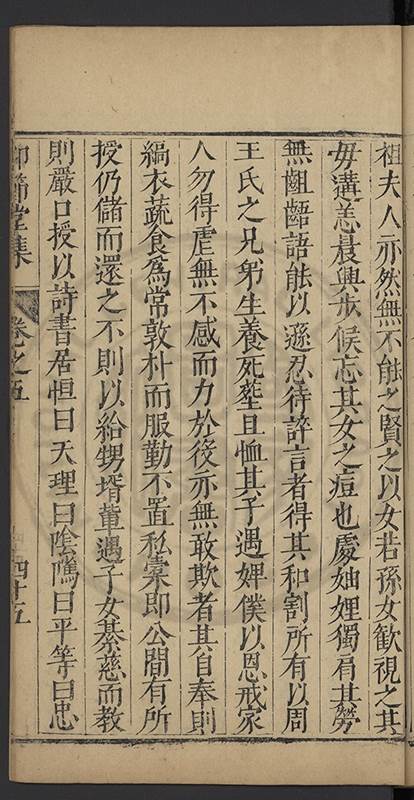 祖夫人亦然無不能之賢之以女若孫女歡視之其
毋遘恙晨興步候忘其女之痘也處妯娌獨肩其勞
無齟齬語能以遜忍待誶言者得其和割所有以周
王氏之兄弟生養死塟且恤其子遇婢僕以恩戒家
人勿得虐無不感而力於後亦無敢欺者其自奉則
縞衣蔬食爲常敦朴而服勤不置私橐即公間有所
授仍儲而還之不則以給甥壻輩遇子女綦慈而教
則嚴口授以詩書居恒曰天理曰陰隲曰平等曰忠
節堂集
卷之五
四十五